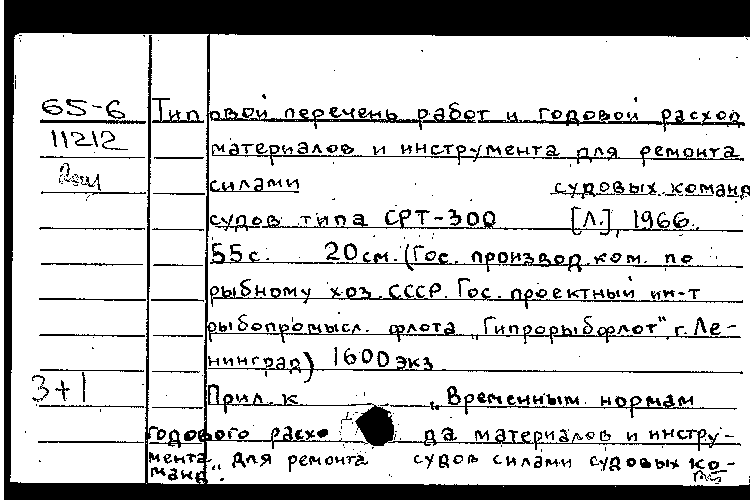 65-6 Типовой перечень работ и годовой расход
11212 материалов и инструмента для ремонта
силами судовых команд
судов типа СРТ-300 [Л.], 1966.
55 с. 20 см. (Гос. производ. ком. по
рыбному хоз. СССР. Гос. проектный ин-т
рыбопромысл. флота „Гипрорыбфлот" г. Ле-
нинград) 1600 экз
3+1 Прил. к „Временным нормам
годового расхода материалов и инстру-
мента„ для ремонта судов силами судовых ко-
манд.